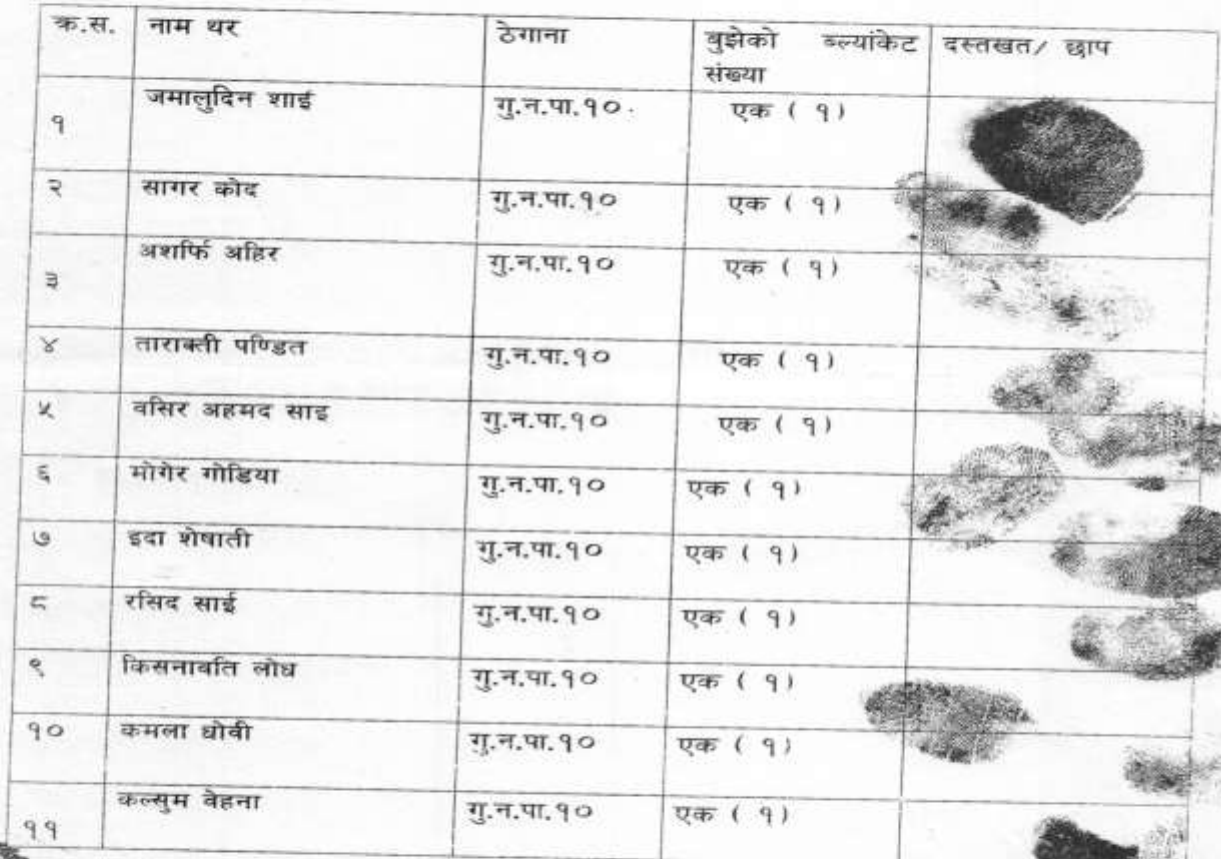 क्र.स. नाम थर ठेगाना बुझेको ब्ल्यांकेट संख्या दस्तखत/ छाप
१ जमालुदिन शाई गु.न.पा.१० एक ( १)
२ सागर कोद गु.न.पा.१० एक ( १)
३ अशर्फि अहिर गु.न.पा.१० एक ( १)
४ ताराक्ती पण्डित गु.न.पा.१० एक ( १)
५ वसिर अहमद साइ गु.न.पा.१० एक ( १)
६ मोगेर गोडिया गु.न.पा.१० एक ( १)
७ इदा शेषाती गु.न.पा.१० एक ( १)
८ रसिद साई गु.न.पा.१० एक ( १)
९ किसनावति लोध गु.न.पा.१० एक ( १)
१० कमला धोवी गु.न.पा.१० एक ( १)
११ कल्सुम वेहना गु.न.पा.१० एक ( १)